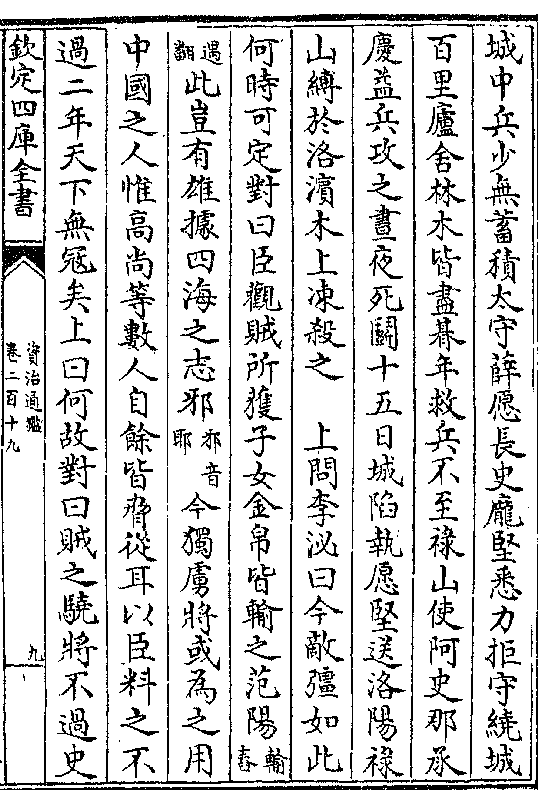 城中兵少無蓄積太守薛愿長史龐堅悉力拒守繞城
百里廬舍林木皆盡朞年救兵不至祿山使阿史那承
慶益兵攻之晝夜死鬭十五日城陷執愿堅送洛陽祿
山縛於洛濱木上凍殺之　上問李泌曰今敵彊如此
何時可定對曰臣觀賊所獲子女金帛皆輸之范陽輸舂
遇翻此豈有雄據四海之志邪邪音耶今獨虜將或為之用
中國之人惟高尚等數人自餘皆脅從耳以臣料之不
過二年天下無冦矣上曰何故對曰賊之驍將不過史
欽定四庫全書
資治通鑑
卷二百十九
九